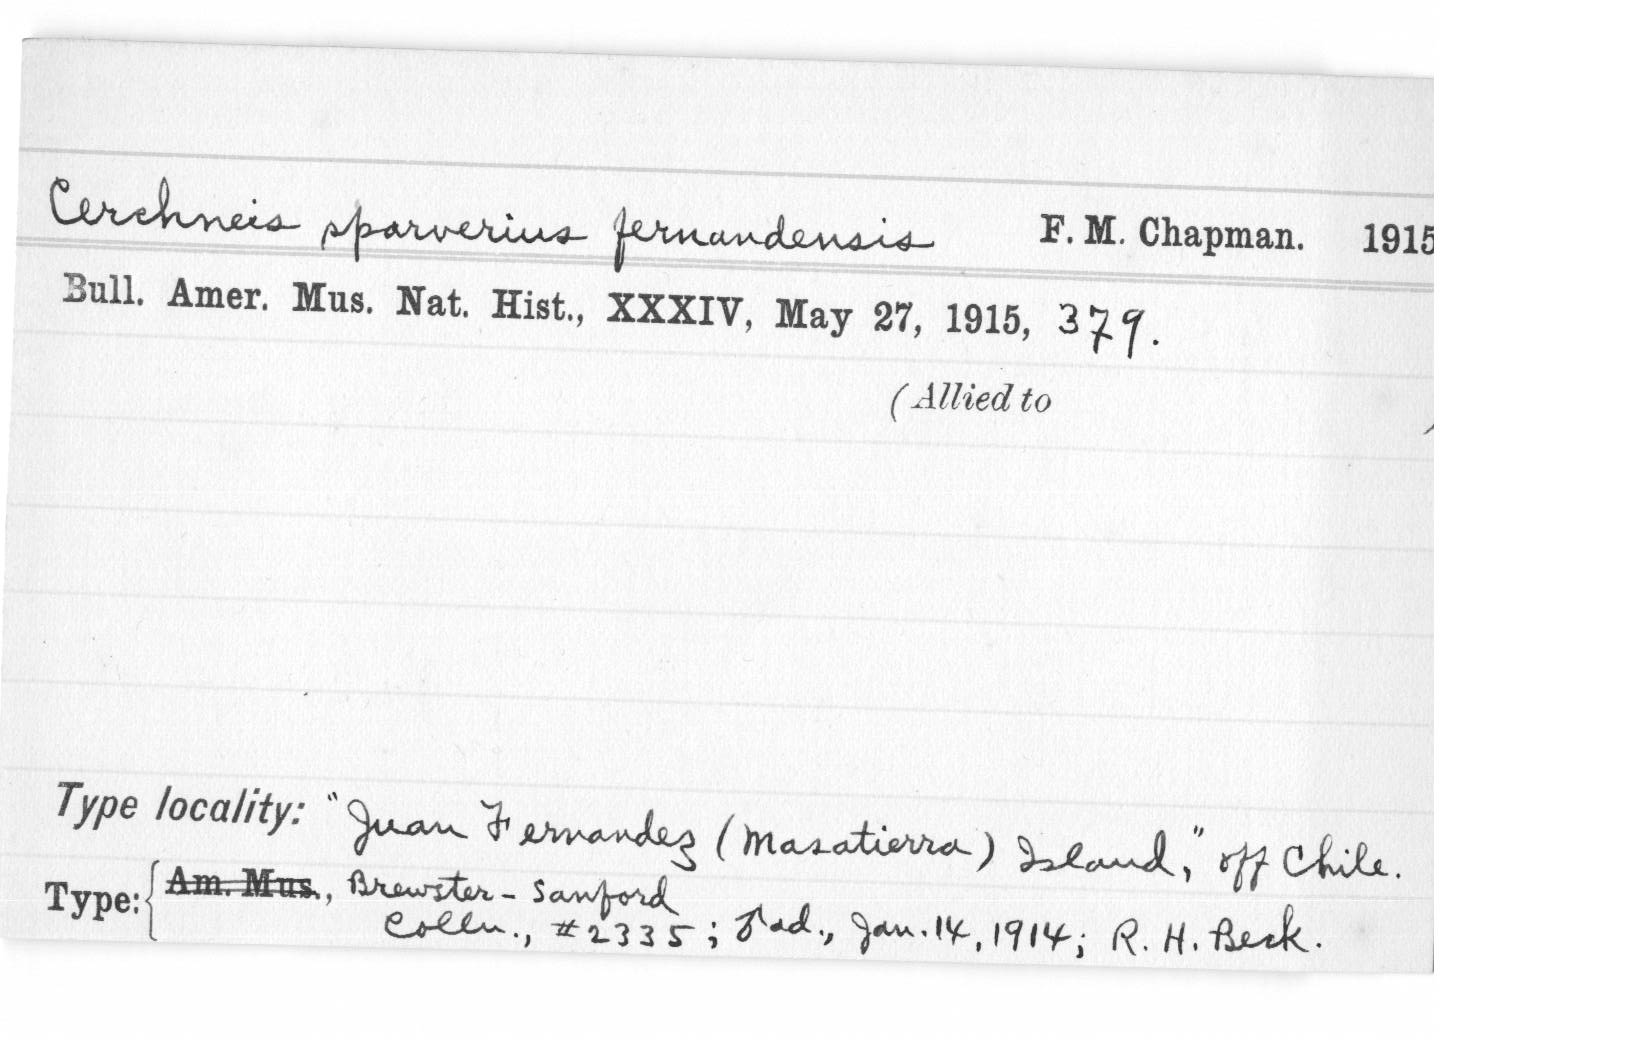 Cerchneis sparverius fernandensis F. M. Chapman. 1915
Bull. Amer. Mus. Nat. Hist., XXXIV, May 27, 1915, 379.
(Allied to )
Type locality: "Juan Fernandez (Masatierra) Island," off Chile.
Type: { Am. Mus., Brewster-Sanford
Colln., #2335; ♂ad., Jan. 14, 1914; R. H. Beck.